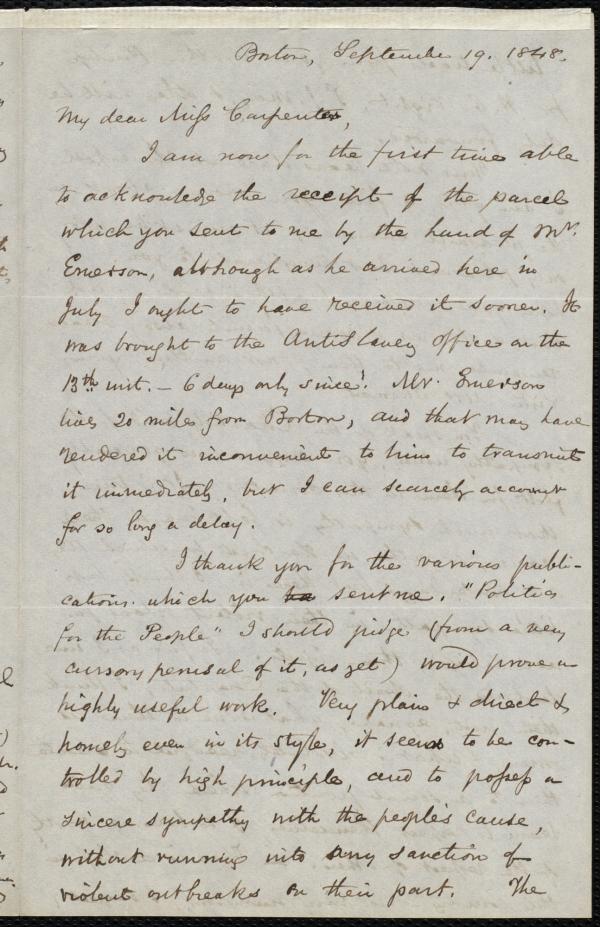 Boston, September 19. 1848.
My dear Miss Carpenter,
I am now for the first time able
to acknowledge the receipt of the parcel
which you sent to me by the hand of Mr.
Emerson, although as he arrived here in
July I ought to have received it sooner. It
was brought to the AntiSlavery Office on the
13th inst. – 6 days only since! Mr. Emerson
lives 20 miles from Boston, and that may have
rendered it inconvenient to him to transmit
it immediately, but I can scarcely account
for so long a delay.
I thank you for the various publi-
cations which you ha sent me. "Politics
for the People" I should judge (from a very
cursory perusal of it, as yet) would prove a
highly useful work. Very plain & direct &
homely even in its style, it seems to be con-
trolled by high principle, and to possess a
sincere sympathy with the people's cause,
without running into any sanction of
violent outbreaks on their part. The